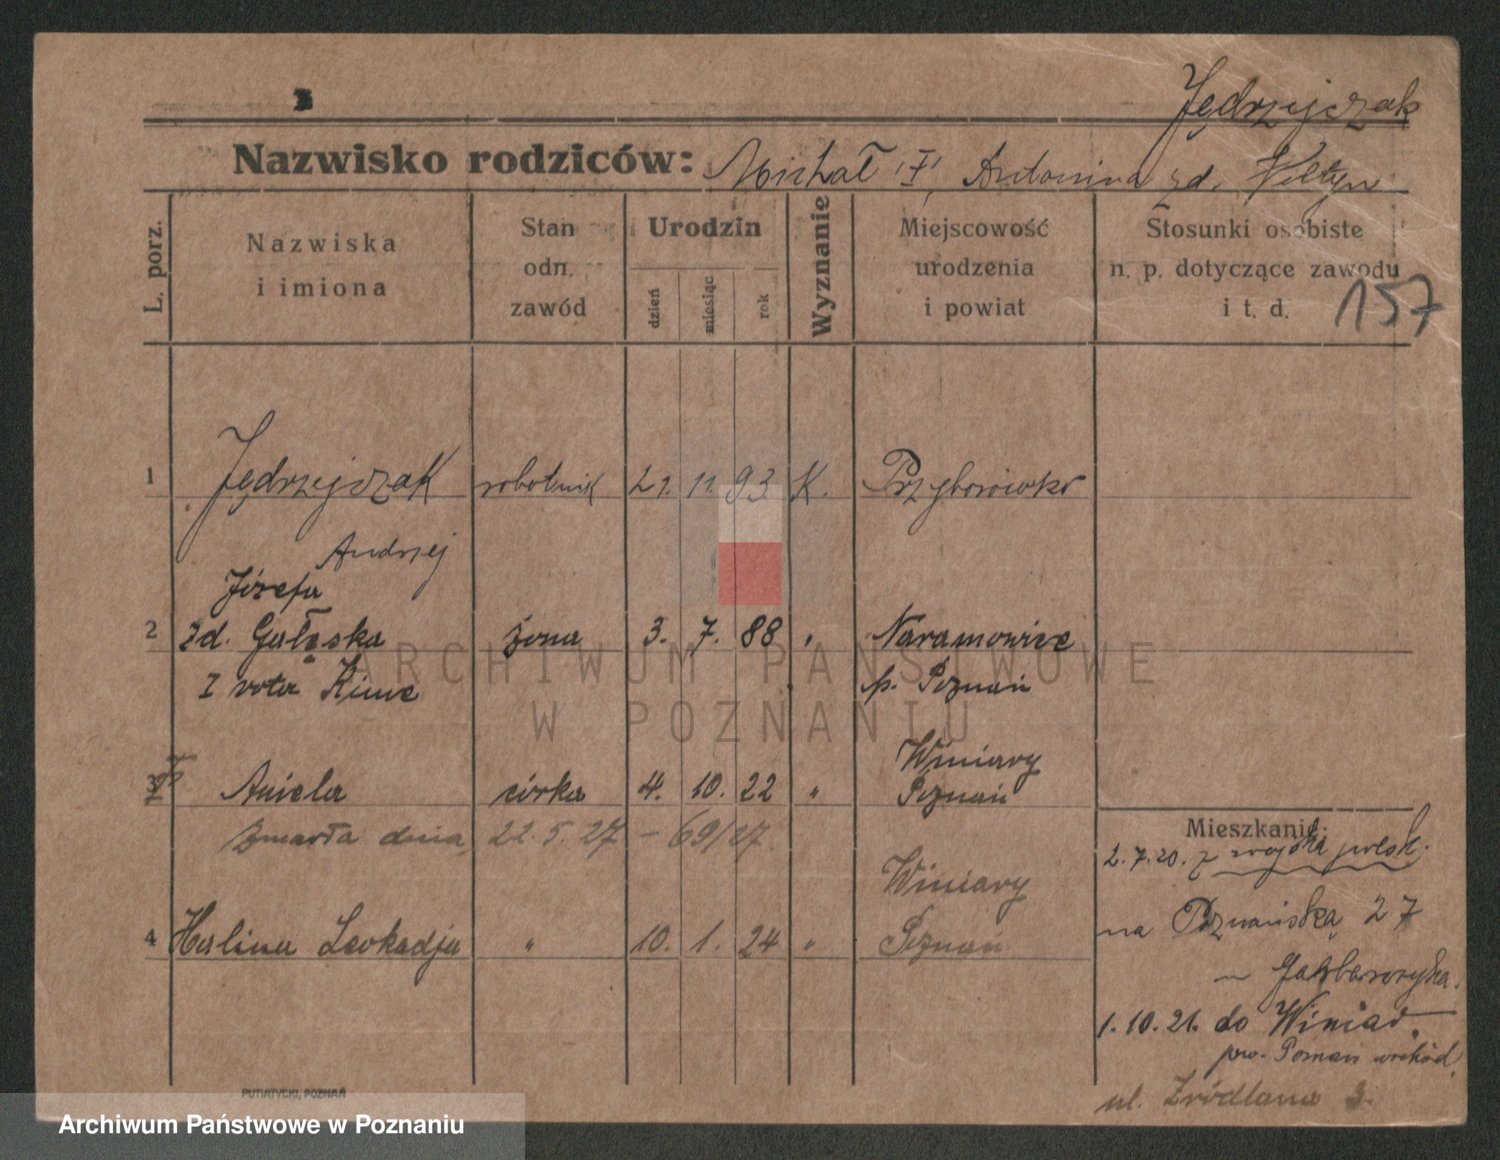 Jędrzejczak
Nazwisko rodziców: Michał Antonina zd.
L. porz.
Nazwiska
i imiona
Stan
odn.
zawód
Urodzin
dzień
miesiąc
rok
Wyznanie
Miejscowość
urodzenia
i powiat
Stosunki osobiste
n. p. dotyczące zawodu
i t. d.
157
1 Jędrzejczak robotnik 21. 11. 93. K. Przyborówko
Andrzej
Józefa
2 zd. Gałęska żona 3. 7. 88 " Naramowice
I voto p. Poznań
Winiary
3 Aniela córka 4. 10. 22 " Poznań
Zmarła dnia 22.5.27 - 69/27
Winiary
4 Halina Leokadja " 10. 1. 24 " Poznań
Mieszkanie:
2.7.20. z wojska polsk.
na Poznańską 27
1.10.21. do Winiar.
pow. Poznań wschód.
ul. Źródlana 3.
PUTIATYCKI, POZNAŃ
ARCHIWUM PAŃSTWOWE
W POZNANIU
Archiwum Państwowe w Poznaniu